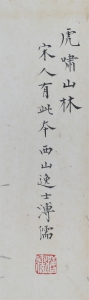 虎嘯山林
宋人有此本西山逸士溥儒